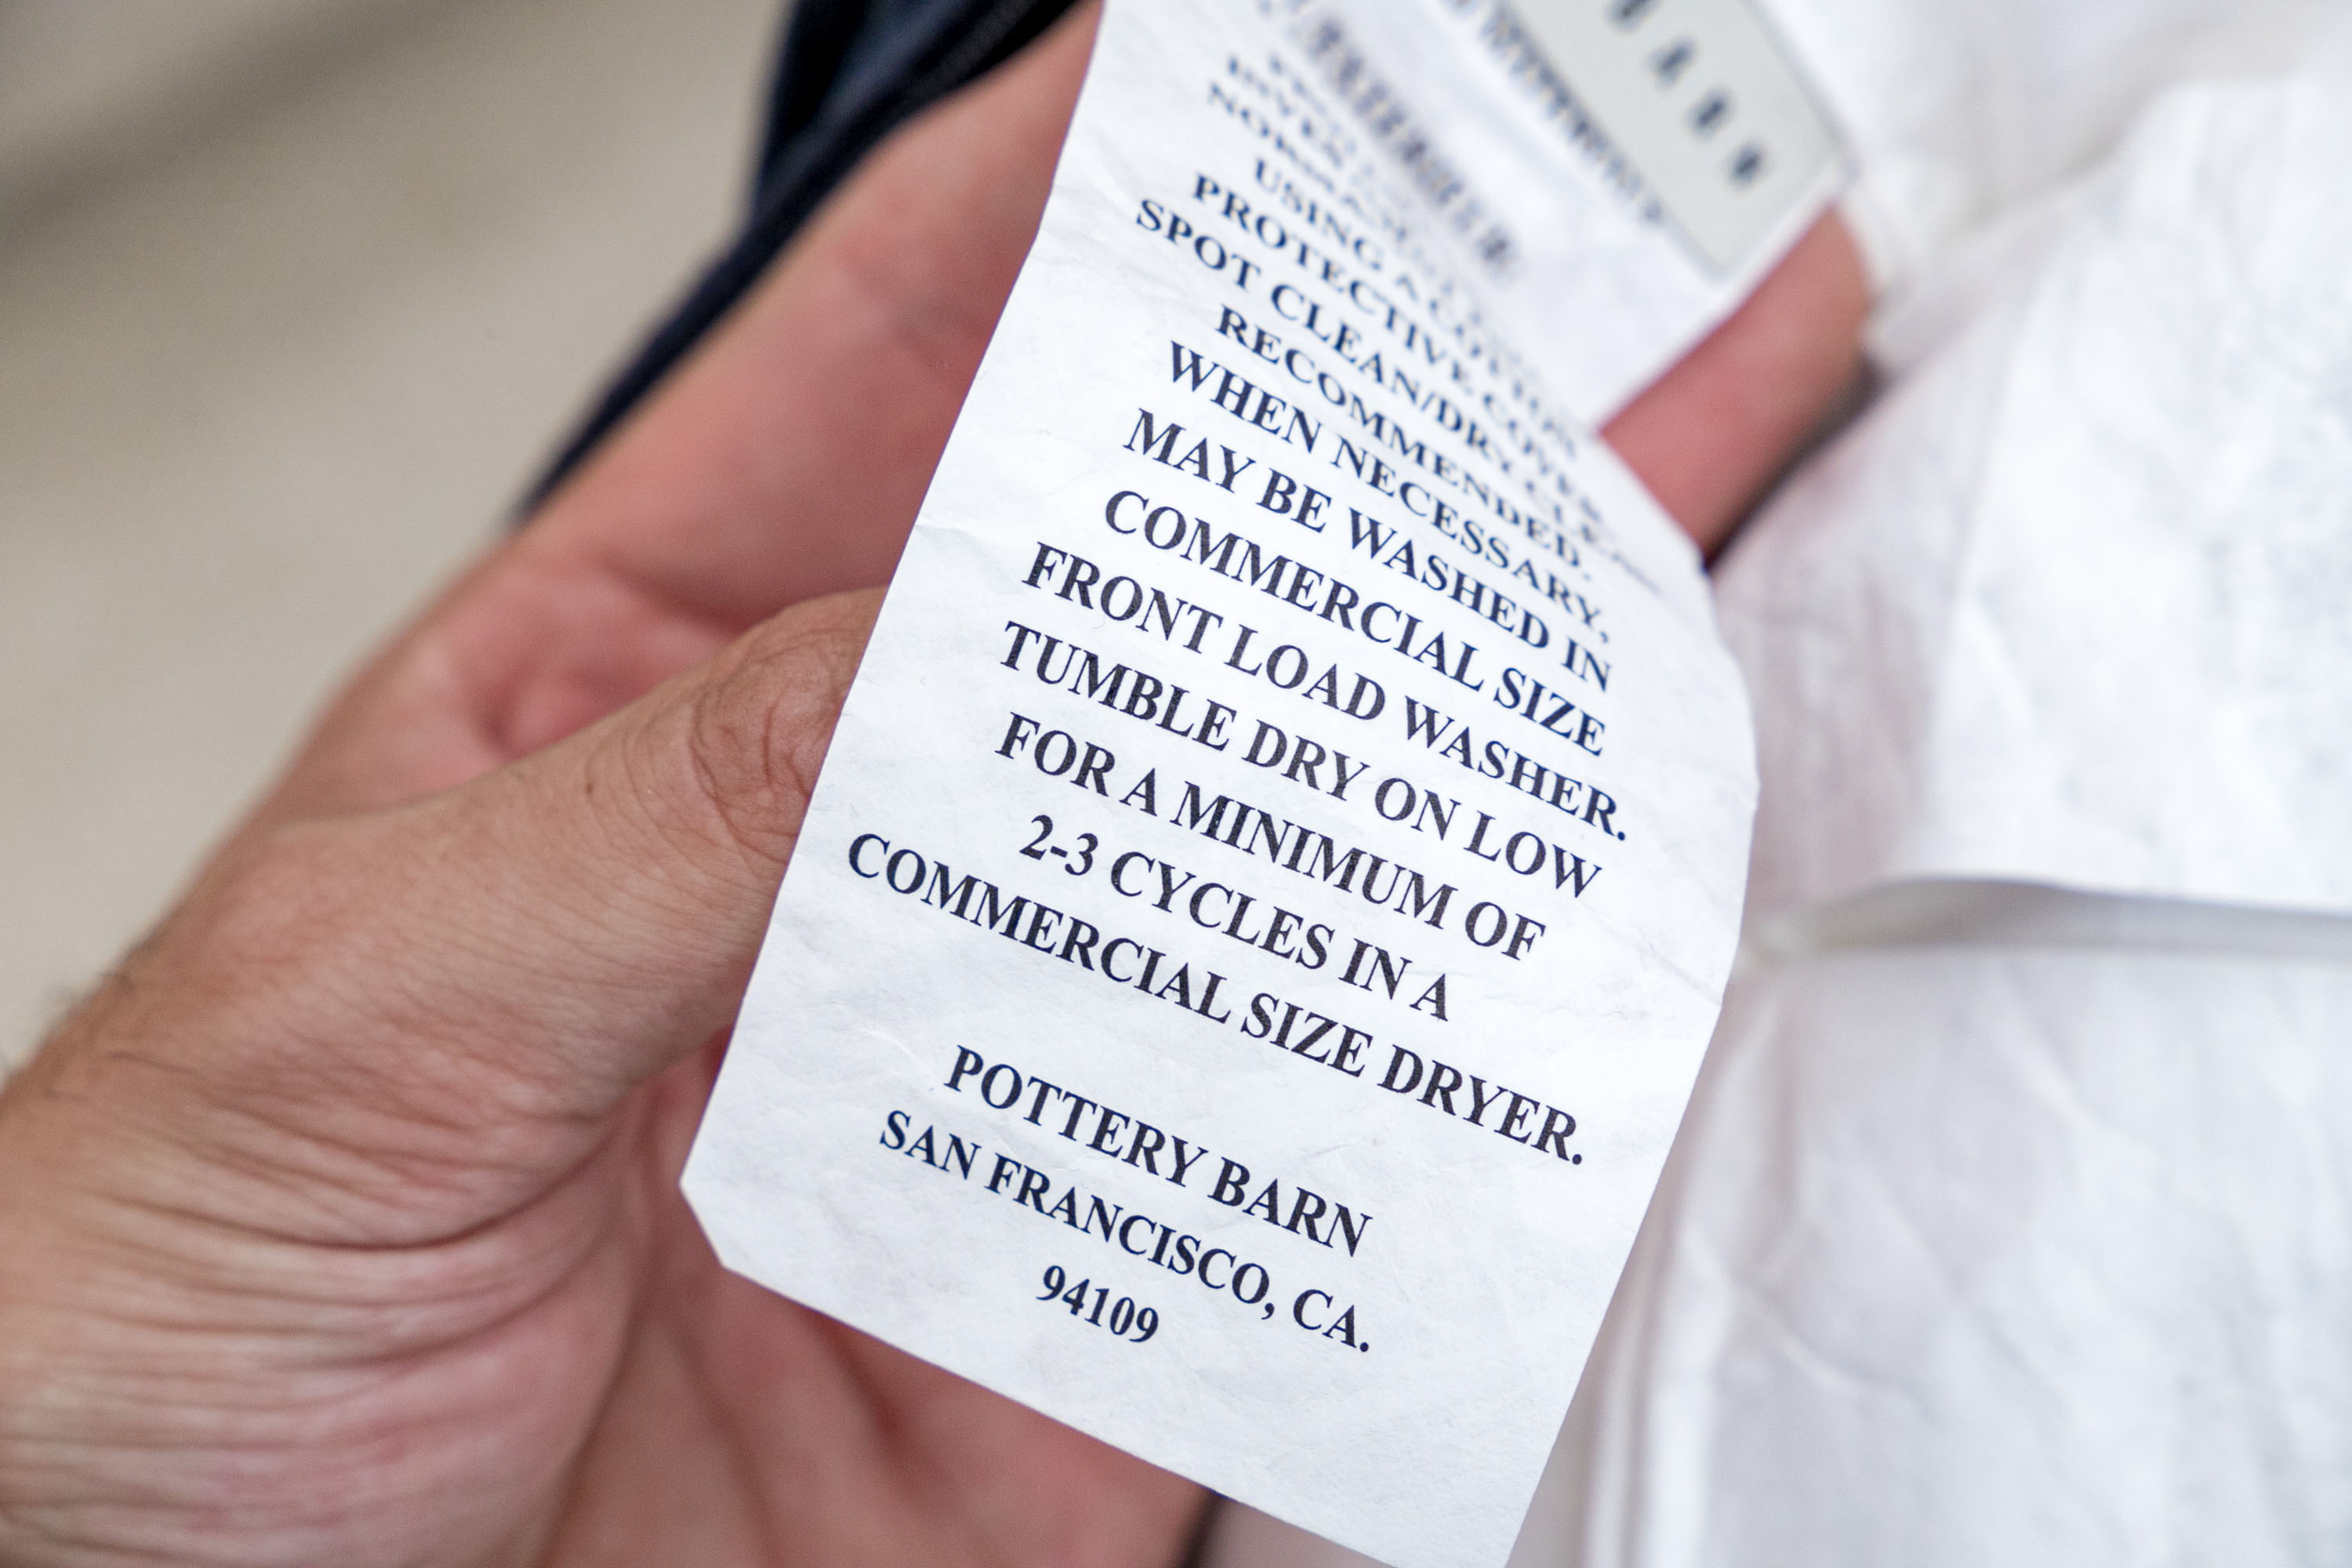 USING A COTTON
PROTECTIVE COVER.
SPOT CLEAN/DRY CLEAN
RECOMMENDED.
WHEN NECESSARY,
MAY BE WASHED IN
COMMERCIAL SIZE
FRONT LOAD WASHER.
TUMBLE DRY ON LOW
FOR A MINIMUM OF
2-3 CYCLES IN A
COMMERCIAL SIZE DRYER.
POTTERY BARN
SAN FRANCISCO, CA.
94109